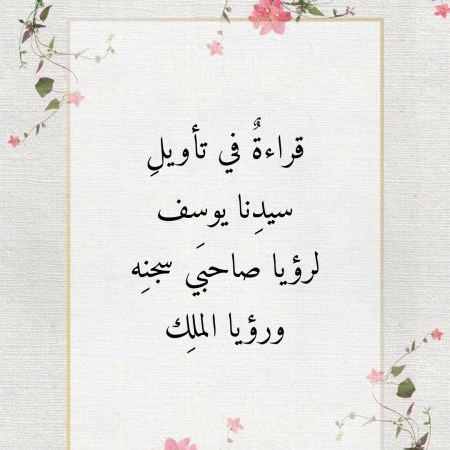 قراءةٌ في تأويلِ
سيدِنا يوسف
لرؤيا صاحبَي سجنِه
ورؤيا الملِك